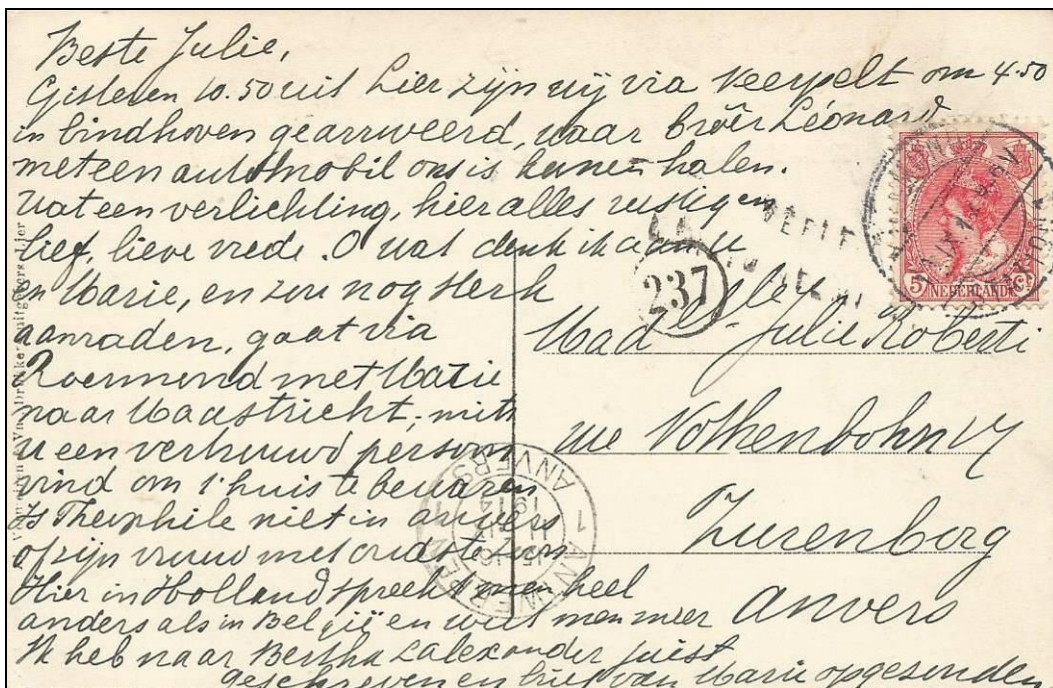 Beste Julie,
Gisteren 10.50 uit Lier zijn wij via Neerpelt om 4.50
in Eindhoven gearriveerd, waar broêr Léonard
met een automobil ons is komen halen.
Wat een verlichting, hier alles rustig en
lief, lieve vrede. O wat denk ik aan u
en Marie, en zou nog sterk
aanraden, gaat via
Roermond met Marie
naar Maastricht, mits
u een vertrouwd persoon
vind om 't huis te bewaren
Is Theophile niet in Anvers
of zijn vrouw met oudste zoon
Hier in Holland spreekt men heel
anders als in België en weet men meer
Ik heb naar Bertha Lalexander juist
geschreven en brief van Marie opgezonden
237
5 NEDERLAND Ct
Mad Julie Roberti
rue Volkenbohn 17
Zurenborg
Anvers
ANTWERPEN
ANVERS
1914